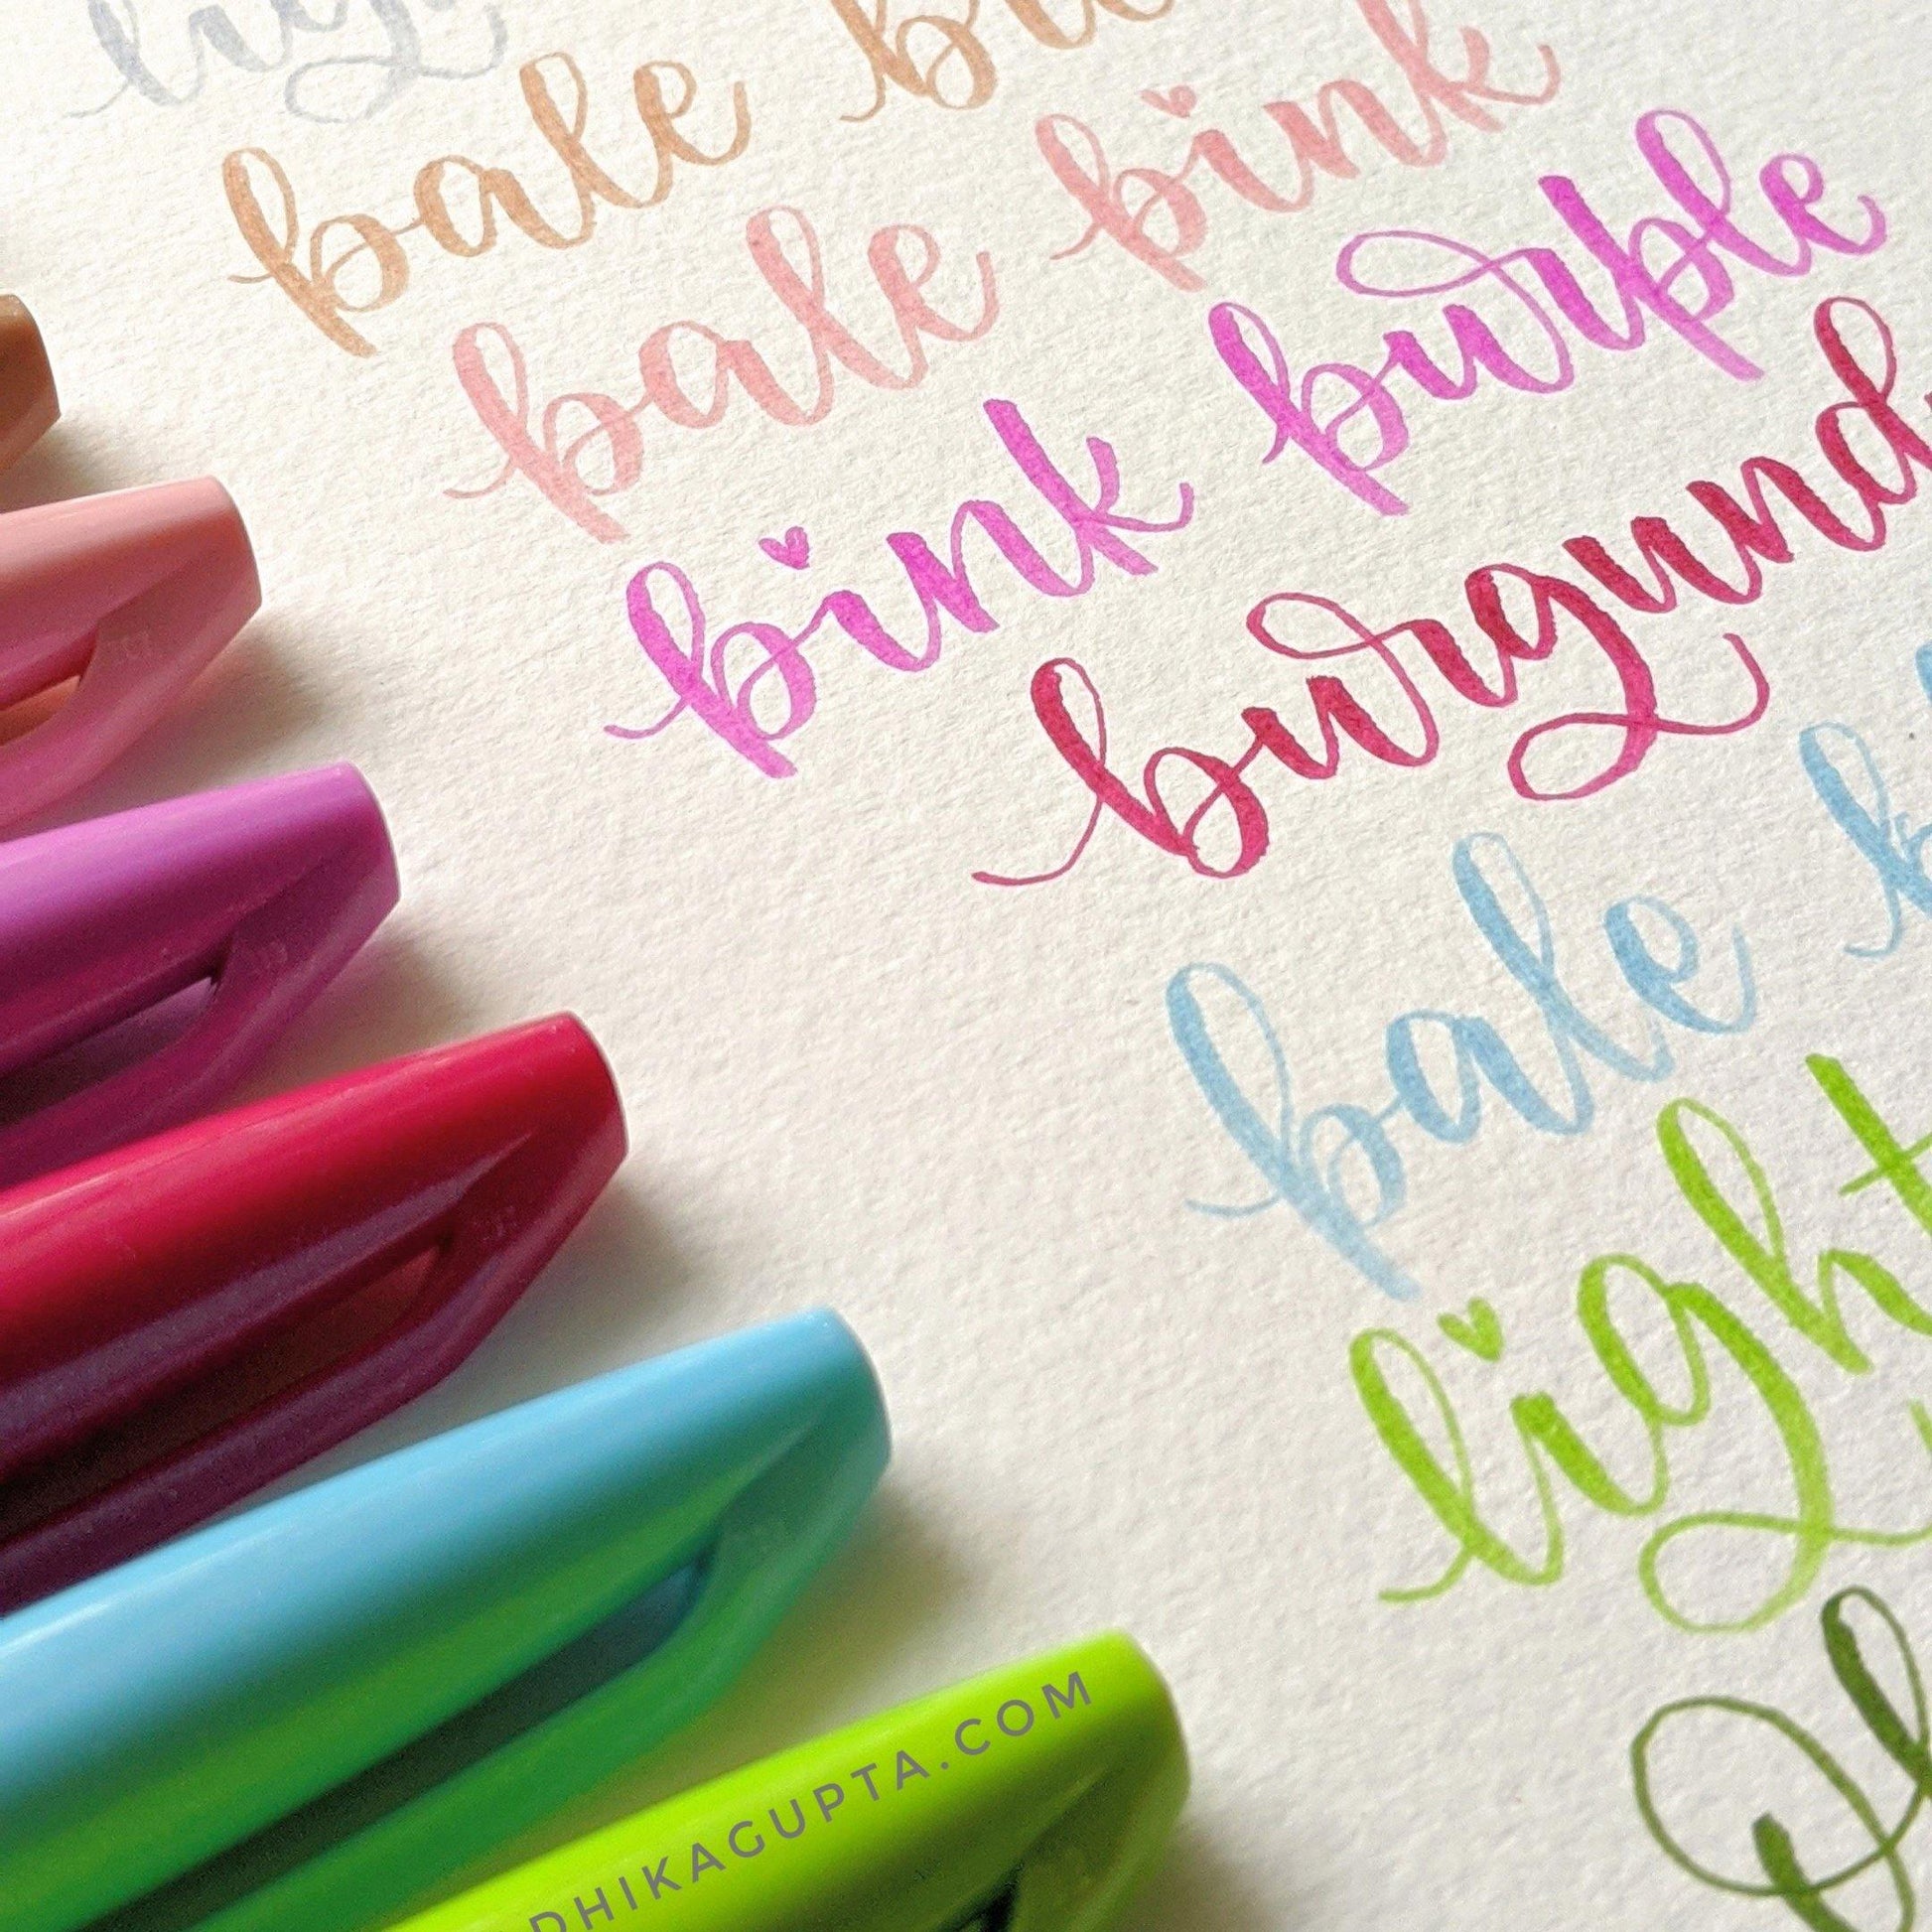 lig
pale br
pale pink
pink purple
burgund
pale b
light
Ol
DHIKAGUPTA.COM